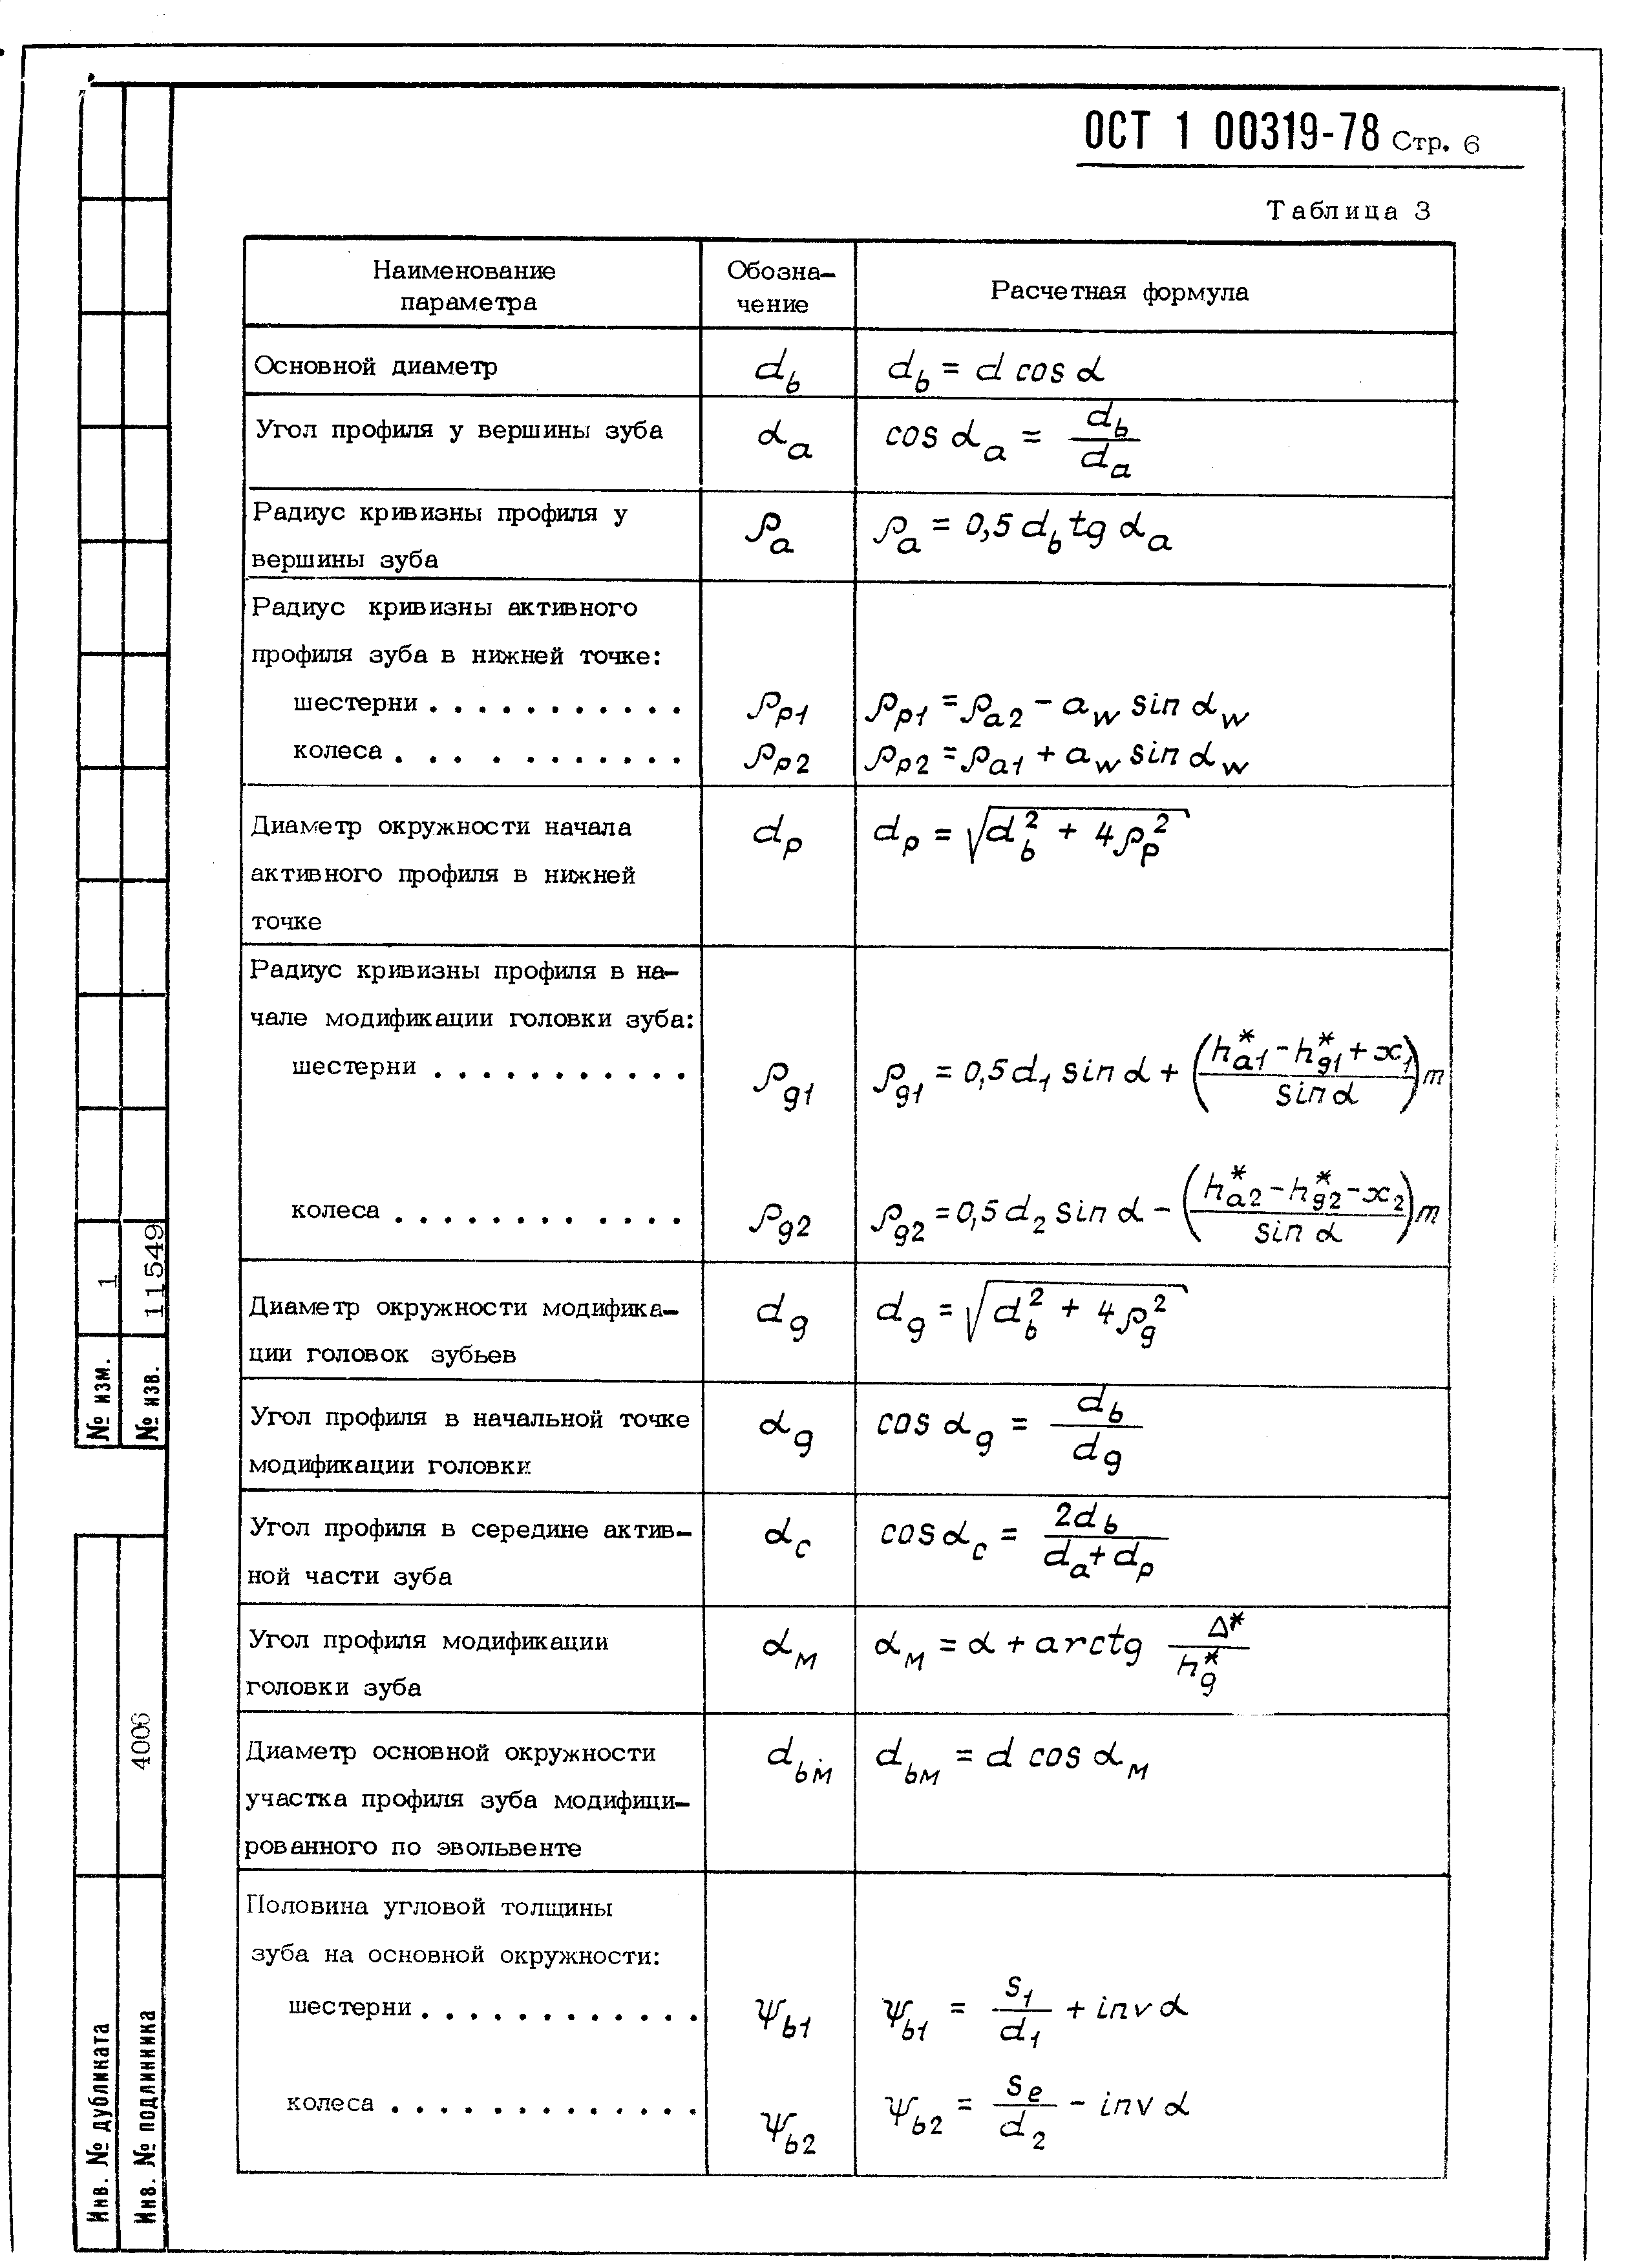 ОСТ 1 00319-78 Стр. 6
Таблица 3
Наименование
параметра
Обозна-
чение
Расчетная формула
Основной диаметр
d_b
d_b = d cos α
Угол профиля у вершины зуба
α_a
cos α_a = d_b / d_a
Радиус кривизны профиля у
вершины зуба
ρ_a
ρ_a = 0,5 d_b tg α_a
Радиус кривизны активного
профиля зуба в нижней точке:
шестерни . . . . . . . . . . .
ρ_p1
ρ_p1 = ρ_a2 - a_w sin α_w
колеса . . . . . . . . . . . .
ρ_p2
ρ_p2 = ρ_a1 + a_w sin α_w
Диаметр окружности начала
активного профиля в нижней
точке
d_p
d_p = √(d_b² + 4ρ_p²)
Радиус кривизны профиля в на-
чале модификации головки зуба:
шестерни . . . . . . . . . . .
ρ_g1
ρ_g1 = 0,5 d_1 sin α + ((h*_a1 - h*_g1 + x_1) / sin α) m
колеса . . . . . . . . . . . . .
ρ_g2
ρ_g2 = 0,5 d_2 sin α - ((h*_a2 - h*_g2 - x_2) / sin α) m
Диаметр окружности модифика-
ции головок зубьев
d_g
d_g = √(d_b² + 4ρ_g²)
Угол профиля в начальной точке
модификации головки
α_g
cos α_g = d_b / d_g
Угол профиля в середине актив-
ной части зуба
α_c
cos α_c = 2d_b / (d_a + d_p)
Угол профиля модификации
головки зуба
α_м
α_м = α + arctg Δ* / h*_g
Диаметр основной окружности
участка профиля зуба модифици-
рованного по эвольвенте
d_bм
d_bм = d cos α_м
Половина угловой толщины
зуба на основной окружности:
шестерни . . . . . . . . . . . .
ψ_b1
ψ_b1 = s_1 / d_1 + inv α
колеса . . . . . . . . . . . . .
ψ_b2
ψ_b2 = s_e / d_2 - inv α
№ изм.
1
№ изв.
11549
Инв. № дубликата
Инв. № подлинника
4006